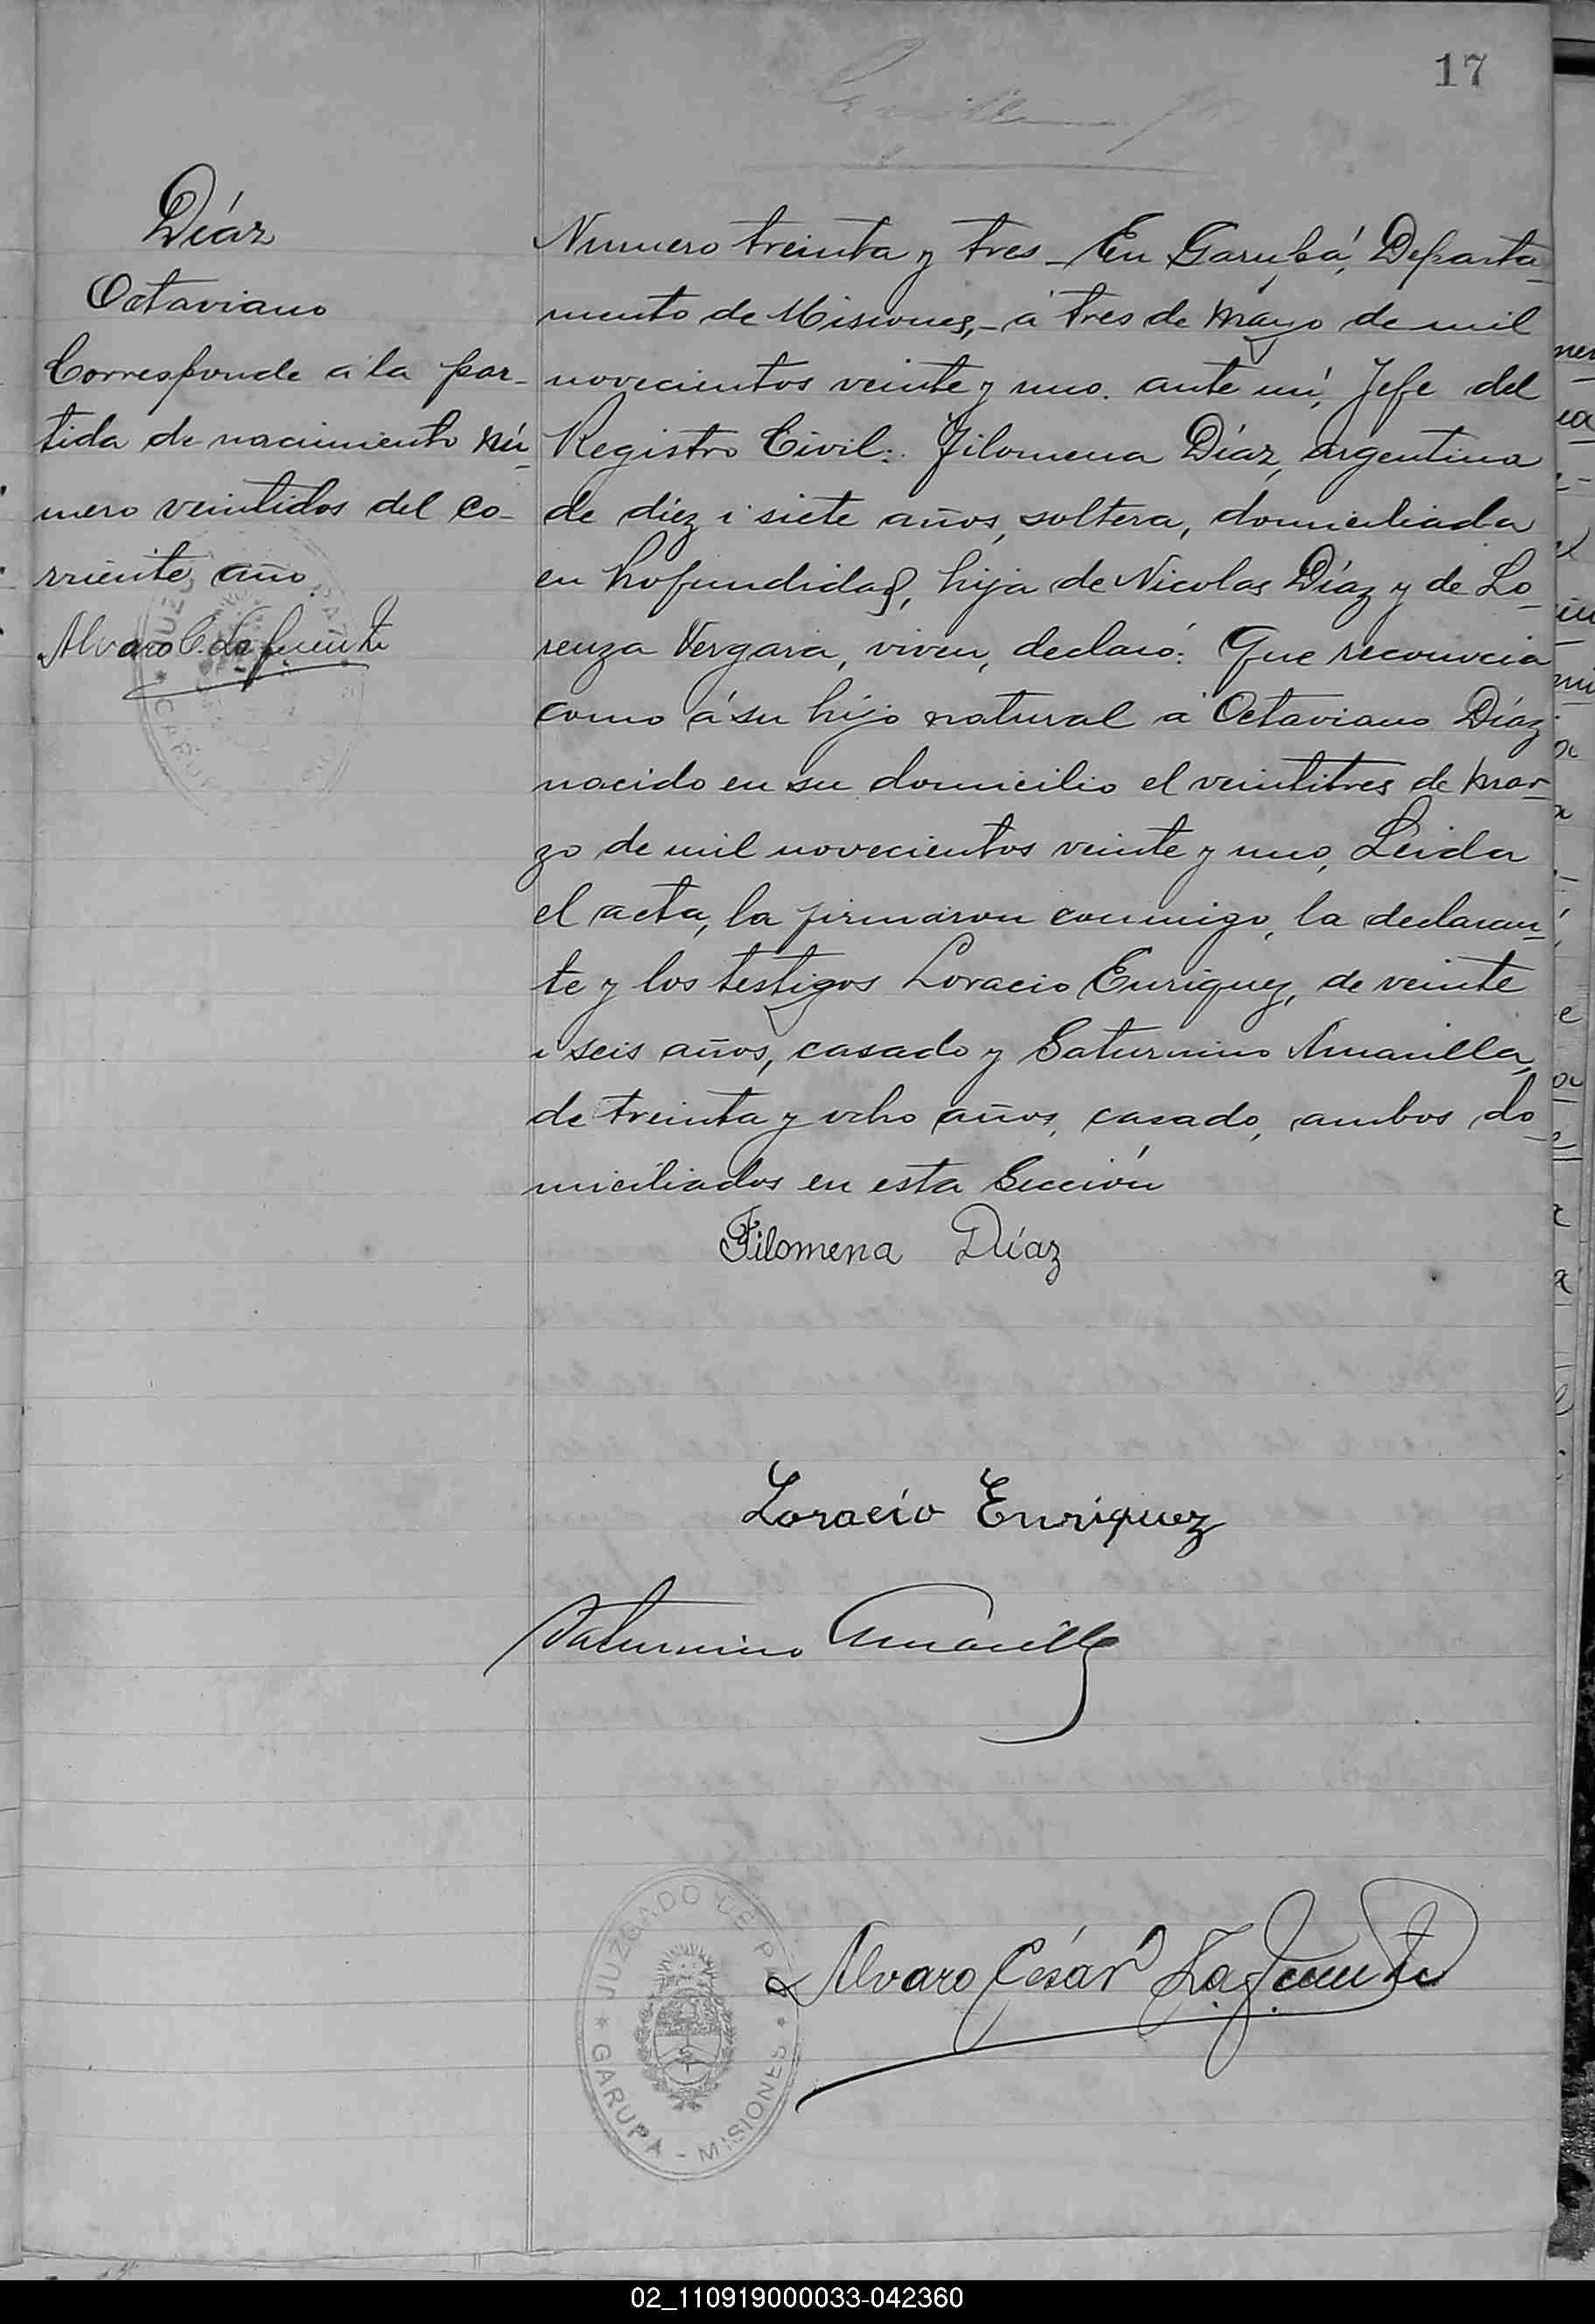 17
Díaz
Octaviano
Corresponde a la par-
tida de nacimiento nú-
mero veintidos del co-
rriente año
Alvaro C. Lafuente
Numero treinta y tres - En Garupá, Departa-
mento de Misiones, - á tres de Mayo de mil
novecientos veinte y uno. ante mí, Jefe del
Registro Civil: Filomena Díaz, argentina
de diez i siete años, soltera, domiciliada
en Profundidad, hija de Nicolas Díaz y de Lo-
renza Vergara, viven, declaró: Que reconocia
como á su hijo natural a Octaviano Díaz
nacido en su domicilio el veintitres de Mar-
zo de mil novecientos veinte y uno, Leida
el acta, la firmaron conmigo, la declaran-
te y los testigos Loracio Enriquez, de veinte
i seis años, casado y Saturnino Amarilla,
de treinta y ocho años, casado, ambos do-
miciliados en esta Sección
Filomena Díaz
Loracio Enriquez
Saturnino Amarilla
Alvaro César Lafuente
JUZGADO DE PAZ
GARUPA - MISIONES
02_110919000033-042360